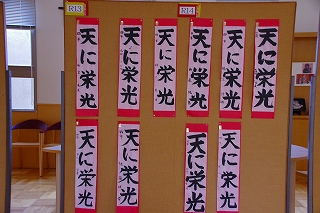 R13
R14
天に栄光
天に栄光
天に栄光
天に栄光
天に栄光
天に栄光
天に栄光
天に栄光
天に栄光
天に栄光